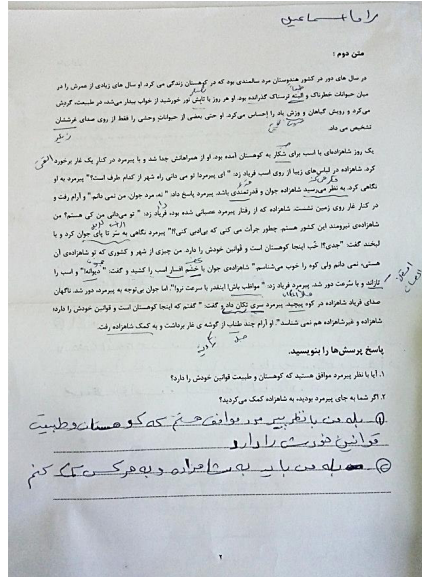 راما اسماعیل
متن دوم :
در سال های دور در کشور هندوستان مرد سالمندی بود که در کوهستان زندگی می کرد. او سال های زیادی از عمرش را در
میان حیوانات خطرناک و البته ترسناک گذرانده بود. او هر روز با تابش نور خورشید از خواب بیدار می‌شد، در طبیعت، گردش
می‌کرد و رویش گیاهان و وزش باد را إحساس می‌کرد. او حتی بعضی از حیوانات وحشی را فقط از روی صدای غرششان
تشخیص می داد.
یک روز شاهزاده‌ای با اسب برای شکار به کوهستان آمده بود. او از همراهانش جدا شد و با پیرمرد در کنار یک غار برخورد
کرد. شاهزاده در لباس‌های زیبا از روی اسب فریاد زد: " ای پیرمرد! تو می دانی راه شهر از کدام طرف است؟" پیرمرد به او
نگاهی کرد. به نظر می‌رسید شاهزاده جوان و قدرتمندی باشد. پیرمرد پاسخ داد: " نه مرد جوان، من نمی دانم." و آرام رفت و
در کنار غار روی زمین نشست. شاهزاده که از رفتار پیرمرد عصبانی شده بود، فریاد زد: " تو می‌دانی من کی هستم؟ من
شاهزاده‌ی نیرومند این کشور هستم. چطور جرأت می کنی که بی‌ادبی کنی؟!" پیرمرد نگاهی به سَر تا پای جوان کرد و با
لبخند گفت: "جدی؟ خُب اینجا کوهستان است و قوانین خودش را دارد. من چیزی از شهر و کشوری که تو شاهزاده‌ی آن
هستی، نمی دانم ولی کوه را خوب می‌شناسم." شاهزاده‌ی جوان با خشم افسار اسب را کشید و گفت: " دیوانه!" و اسب را
تازاند و با سُرعت دور شد. پیرمرد فریاد زد: " مواظب باش! اینقدر با سرعت نرو!". اما جوان بی‌توجه به پیرمرد، دور شد. ناگهان
صدای فریاد شاهزاده در کوه پیچید. پیرمرد سری تکان داد و گفت: " گفتم که اینجا کوهستان است و قوانین خودش را دارد؛
شاهزاده و غیرشاهزاده هم نمی شناسد". او آرام چند طناب از گوشه ی غار برداشت و به کمک شاهزاده رفت.
پاسخ پرسش‌ها را بنویسید.
۱. آیا با نظر پیرمرد موافق هستید که کوهستان و طبیعت قوانین خودش را دارد؟
۲. اگر شما به جای پیرمرد بودید، به شاهزاده کمک می‌کردید؟
① بله من با نظر پیر مرد موافق هستم که کوهستان و طبیعت
قوانین خودش را دارد
② بله من باید به شاهزاده و به هر کس کمک کنم
۲